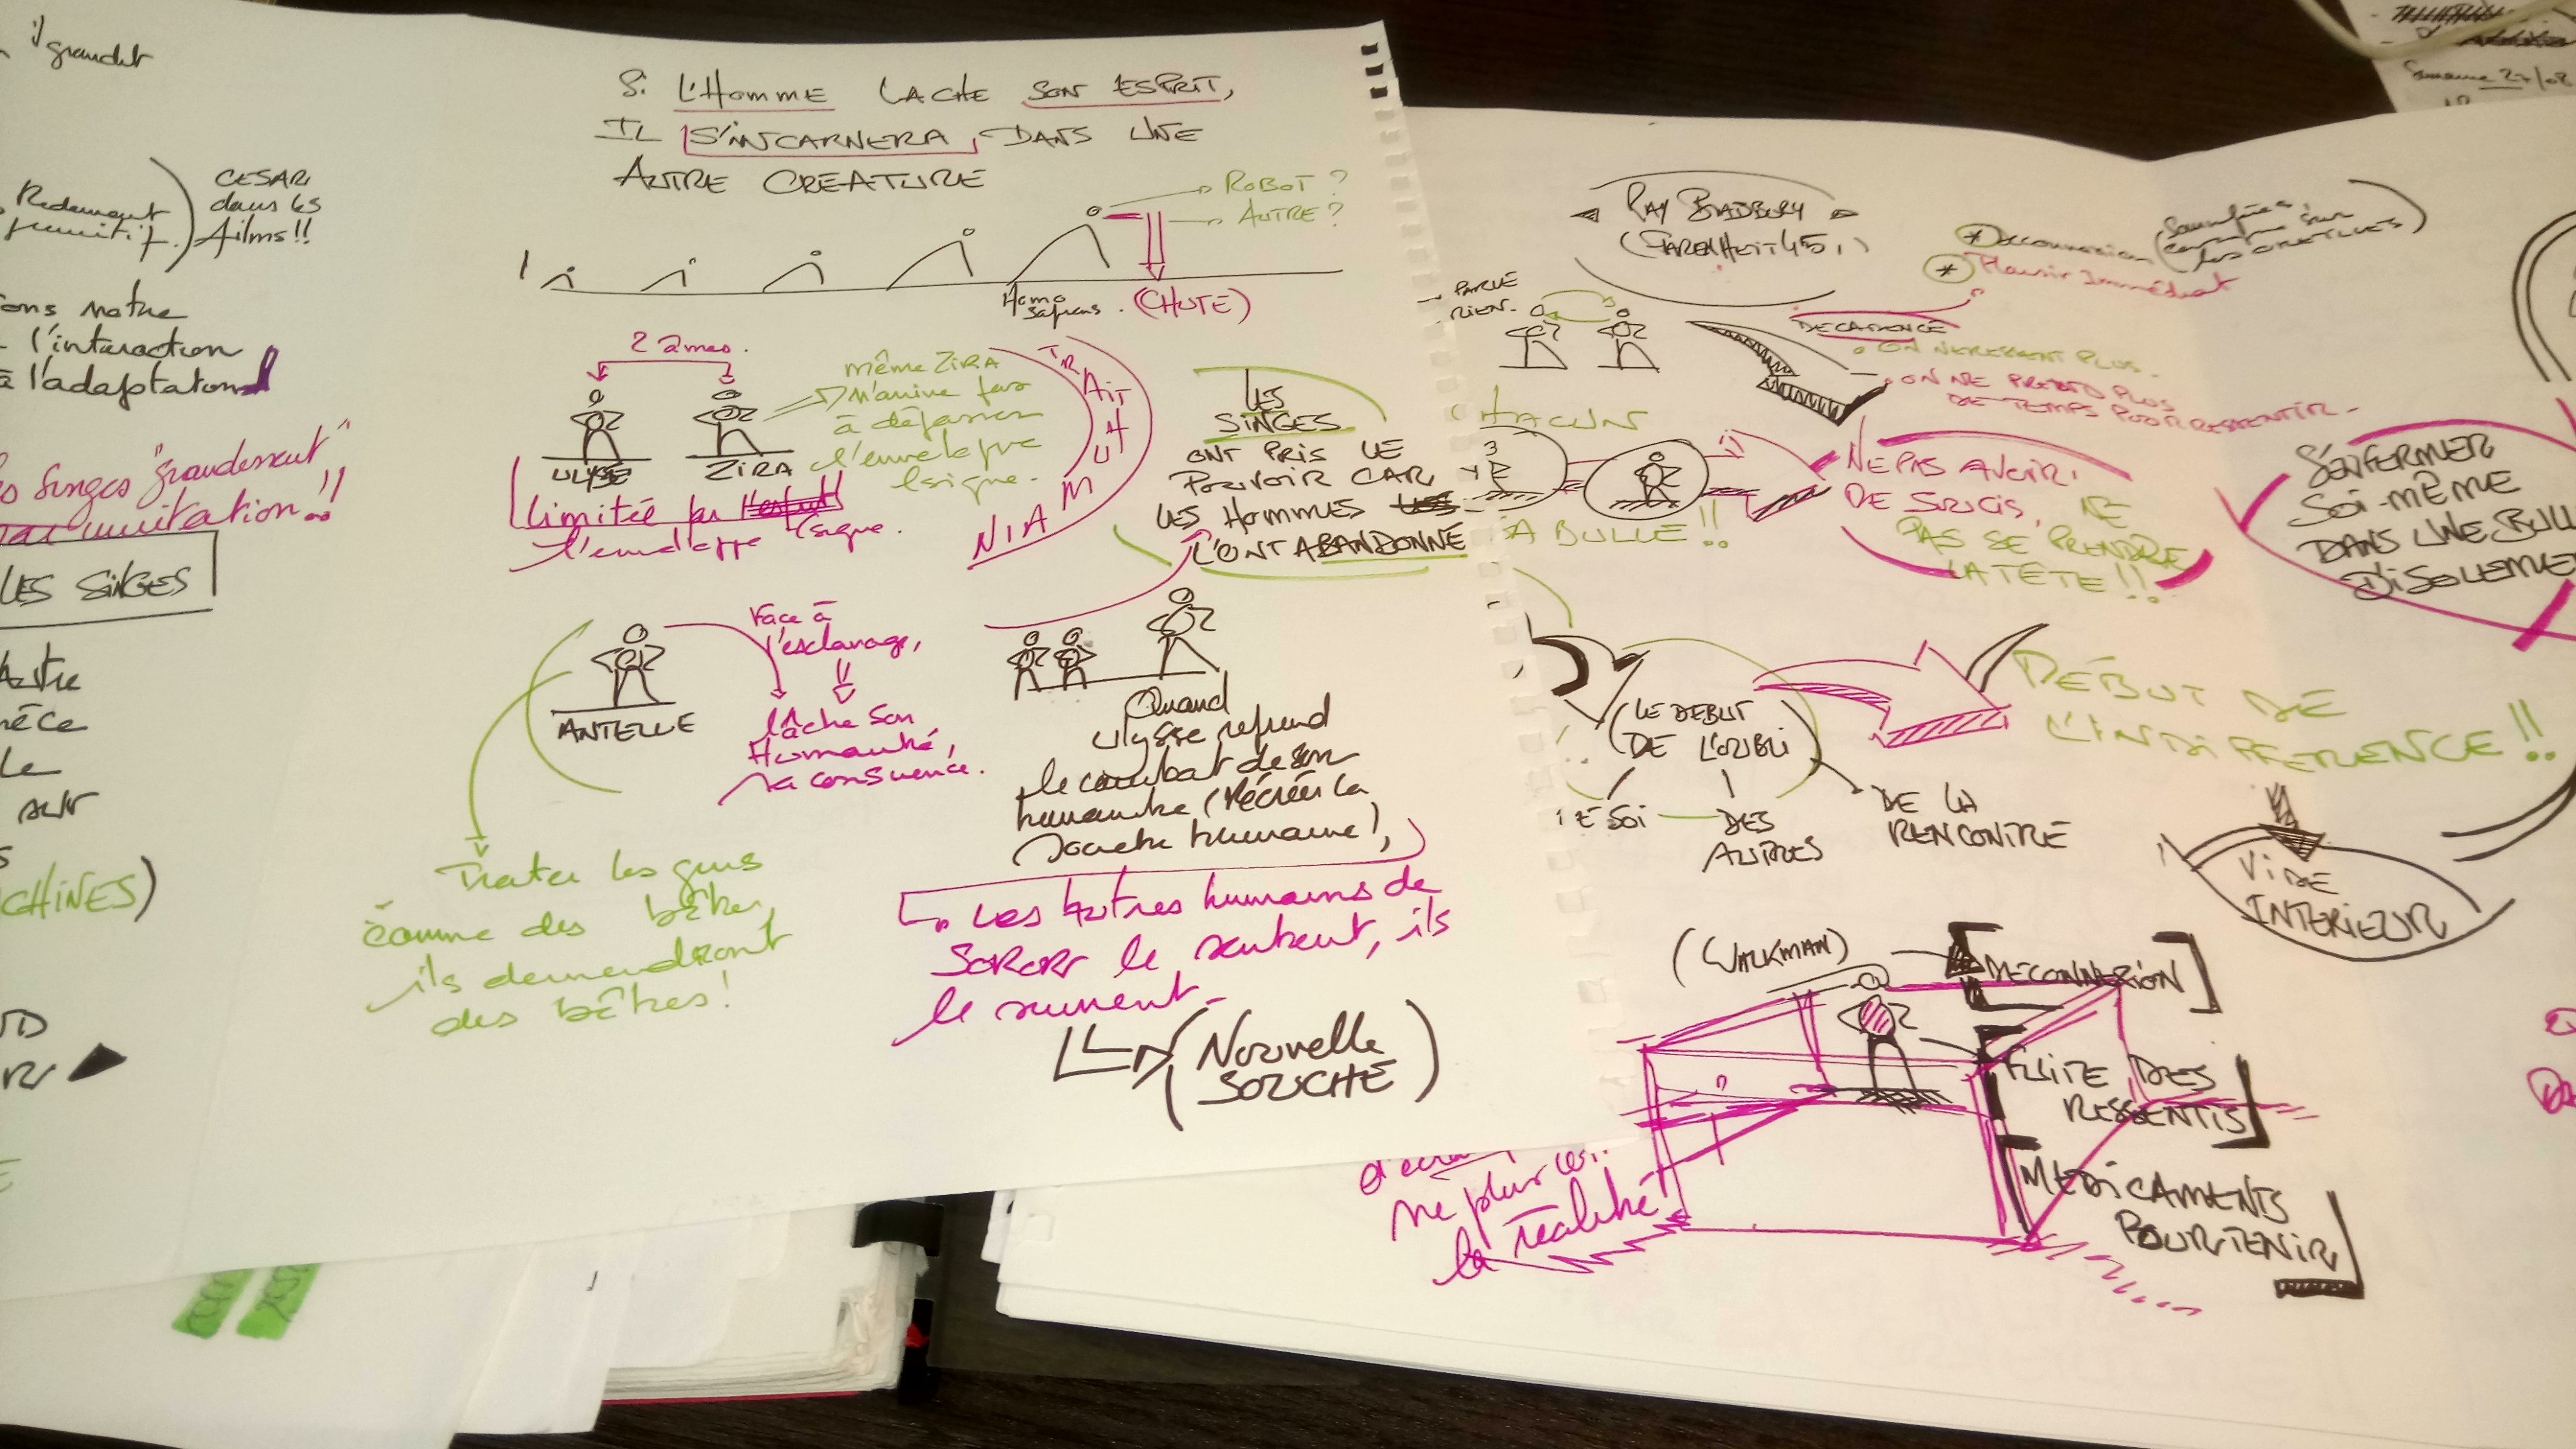 il grandit
CESAR
dans les
films!!
Redement
primitif.
ons notre
l'interaction
à l'adaptation
Singes "grandissent"
imitation!!
LES SINGES
Autre
sur
CHINES)
Si L'HOMME LACHE SON ESPRIT,
IL S'INCARNERA, DANS UNE
AUTRE CREATURE
ROBOT?
AUTRE?
Homo
sapiens.
(CHUTE)
2 âmes.
ULYSSE
ZIRA
même ZIRA
n'arrive pas
à dépasser
l'enveloppe
Limitée par
l'enveloppe
TRAIT
HUMAIN
LES
SINGES
ONT PRIS LE
POUVOIR CAR
LES HOMMES
L'ONT ABANDONNE
ANTELLE
Face à
l'esclavage,
lâche son
Humanité,
sa conscience.
Traiter les gens
comme des bêtes,
ils deviendront
des bêtes!
Quand
Ulysse reprend
le combat de son
humanité (Récréer la
société humaine),
Les autres humains de
SOROR le sentent, ils
le suivent.
(Nouvelle
SOUCHE)
Semaine 27/08
RAY BRADBURY
(FARENHEIT 451)
Déconnexion
Plaisir immédiat
PARLE
RIEN.
DECADENCE
ON NE RESSENT PLUS.
ON NE PREND PLUS
DE TEMPS POUR RESSENTIR.
CHACUN
SA BULLE!!
NE PAS AVOIR
DE SOUCIS, NE
PAS SE PRENDRE
LA TÊTE!!
S'ENFERMER
SOI-MÊME
DANS UNE BULL
D'ISOLEME
(LE DEBUT
DE L'OUBLI)
DE SOI
DES
AUTRES
DE LA
RENCONTRE
DÉBUT DE
L'INDIFFERENCE!!
VIDE
INTERIEUR
(WALKMAN)
[DECONNEXION]
FUITE DES
RESSENTIS
MEDICAMENTS
POUR TENIR
ne plus
la réalité